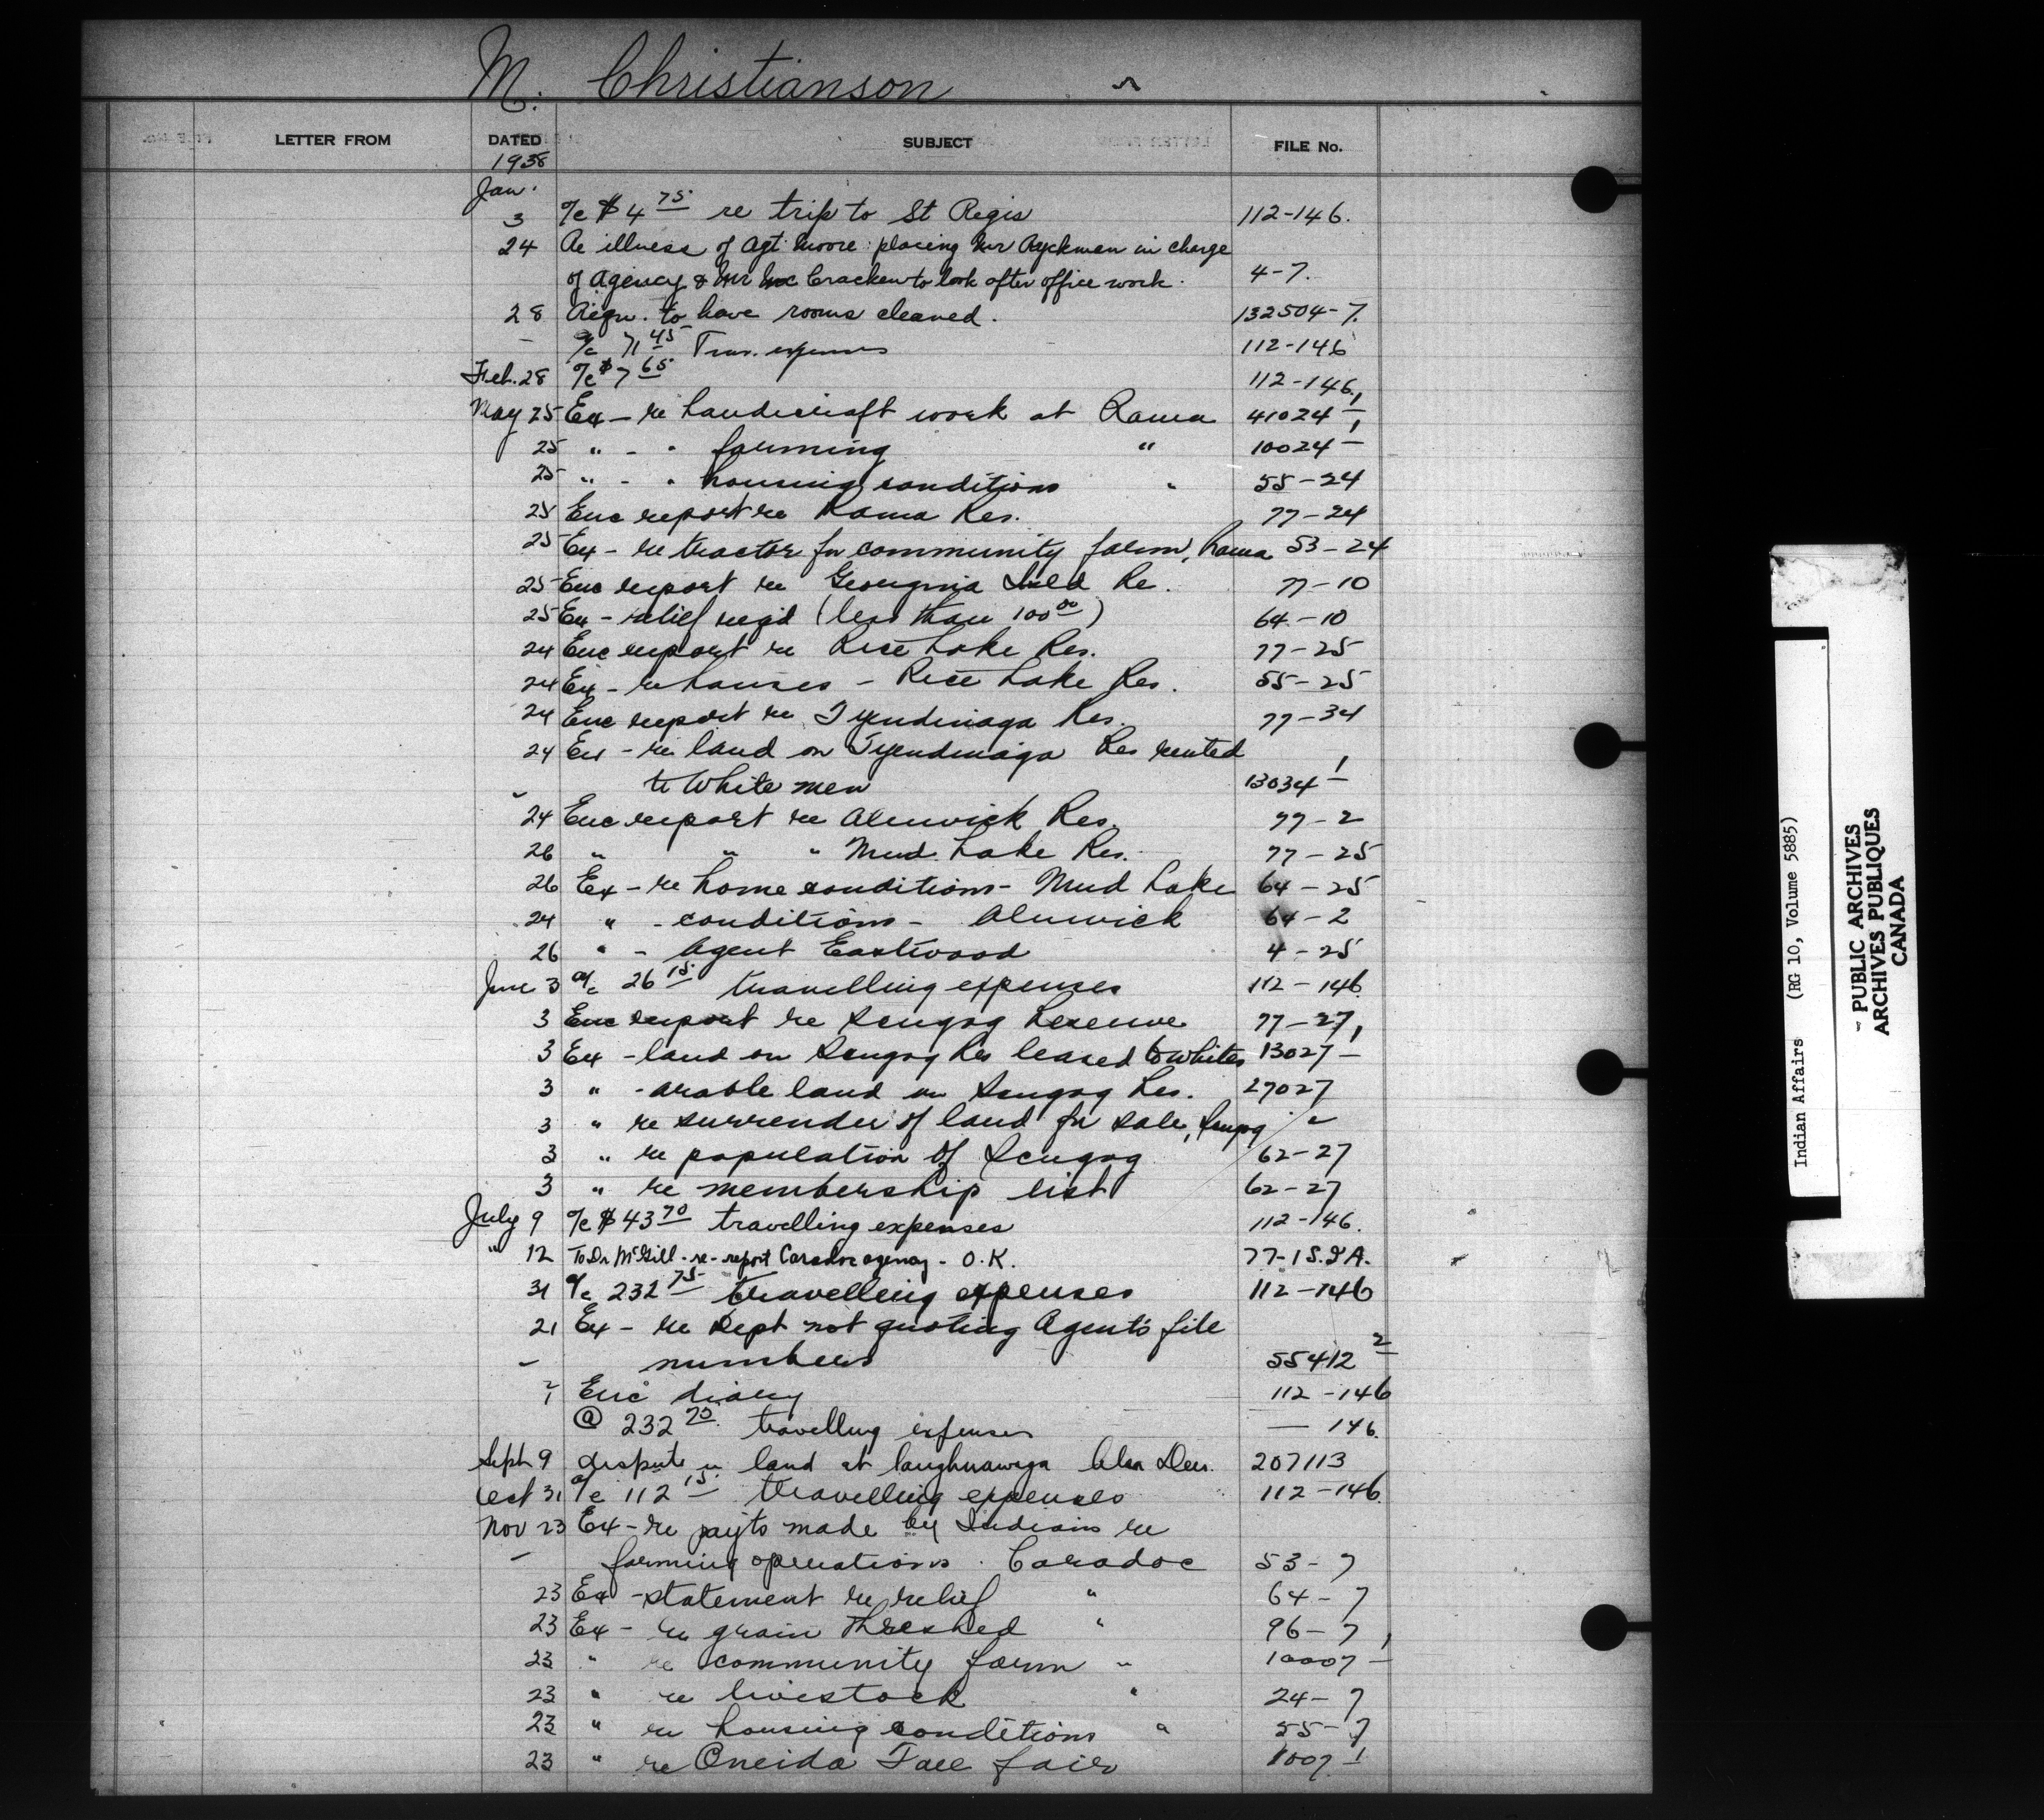 M. Christianson
LETTER FROM DATED SUBJECT FILE No.
1938
Jan.
3 a/c $4 75 re trip to St Regis 112-146.
24 Re illness of Agt. Moore: placing Mr Ryckman in charge
of Agency & Mr McCracken to look after office work. 4-7.
28 Requ. to have rooms cleaned. 132504-7.
- a/c 71 45 Trav. expenses 112-146
Feb. 28 a/c $7 65 112-146
May 25 Ex - re handicraft work at Rama 41024-1
25 " - " farming " 10024-1
25 " - " housing conditions " 55-24
25 Enc report re Rama Res. 77-24
25 Ex - re tractor for community farm, Rama 53-24
25 Enc report re Georgina Isld Re. 77-10
25 Ex - relief req'd (less than 100 00) 64-10
24 Enc report re Rice Lake Res. 77-25
24 Ex - re houses - Rice Lake Res. 55-25
24 Enc report re Tyendinaga Res. 77-34
24 Ex - re land on Tyendinaga Res rented
to White men 13034-1
24 Enc report re Alnwick Res. 77-2
26 " " " Mud Lake Res. 77-25
26 Ex - re home conditions - Mud Lake 64-25
24 " - conditions - Alnwick 64-2
26 " - Agent Eastwood 4-25
June 3 a/c 26 15 travelling expenses 112-146
3 Enc report re Scugog Reserve 77-27
3 Ex - land on Scugog Res leased to whites 13027-1
3 " - arable land on Scugog Res. 27027
3 " re surrender of land for sale, Scugog "
3 " re population of Scugog 62-27
3 " re membership list 62-27
July 9 a/c $43 70 travelling expenses 112-146.
" 12 To Dr McGill - re - report Caradoc agency - O.K. 77-1 S.I.A.
31 a/c 232 75 travelling expenses 112-146
21 Ex - re Dept not quoting Agent's file
- numbers 55412 2
? Enc diary 112-146
@ 232 75 travelling expenses — 146.
Sept 9 dispute re land at Caughnawaga Alex Deer. 207113
Oct 31 a/c 112 15 travelling expenses 112-146
Nov 23 Ex - re payts made by Indians re
- farming operations. Caradoc 53-7
23 Ex - statement re relief " 64-7
23 Ex - re grain threshed " 96-7
23 " re community farm " 10007-1
23 " re livestock " 24-7
23 " re housing conditions " 55-7
23 " re Oneida Fall fair 1007-1
Indian Affairs (RG 10, Volume 5885)
- PUBLIC ARCHIVES
ARCHIVES PUBLIQUES
CANADA